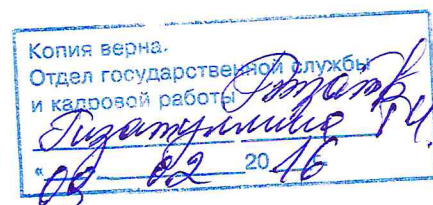 Копия верна.
Отдел государственной службы
и кадровой работы
Гизатуллина
"09" 02 2016